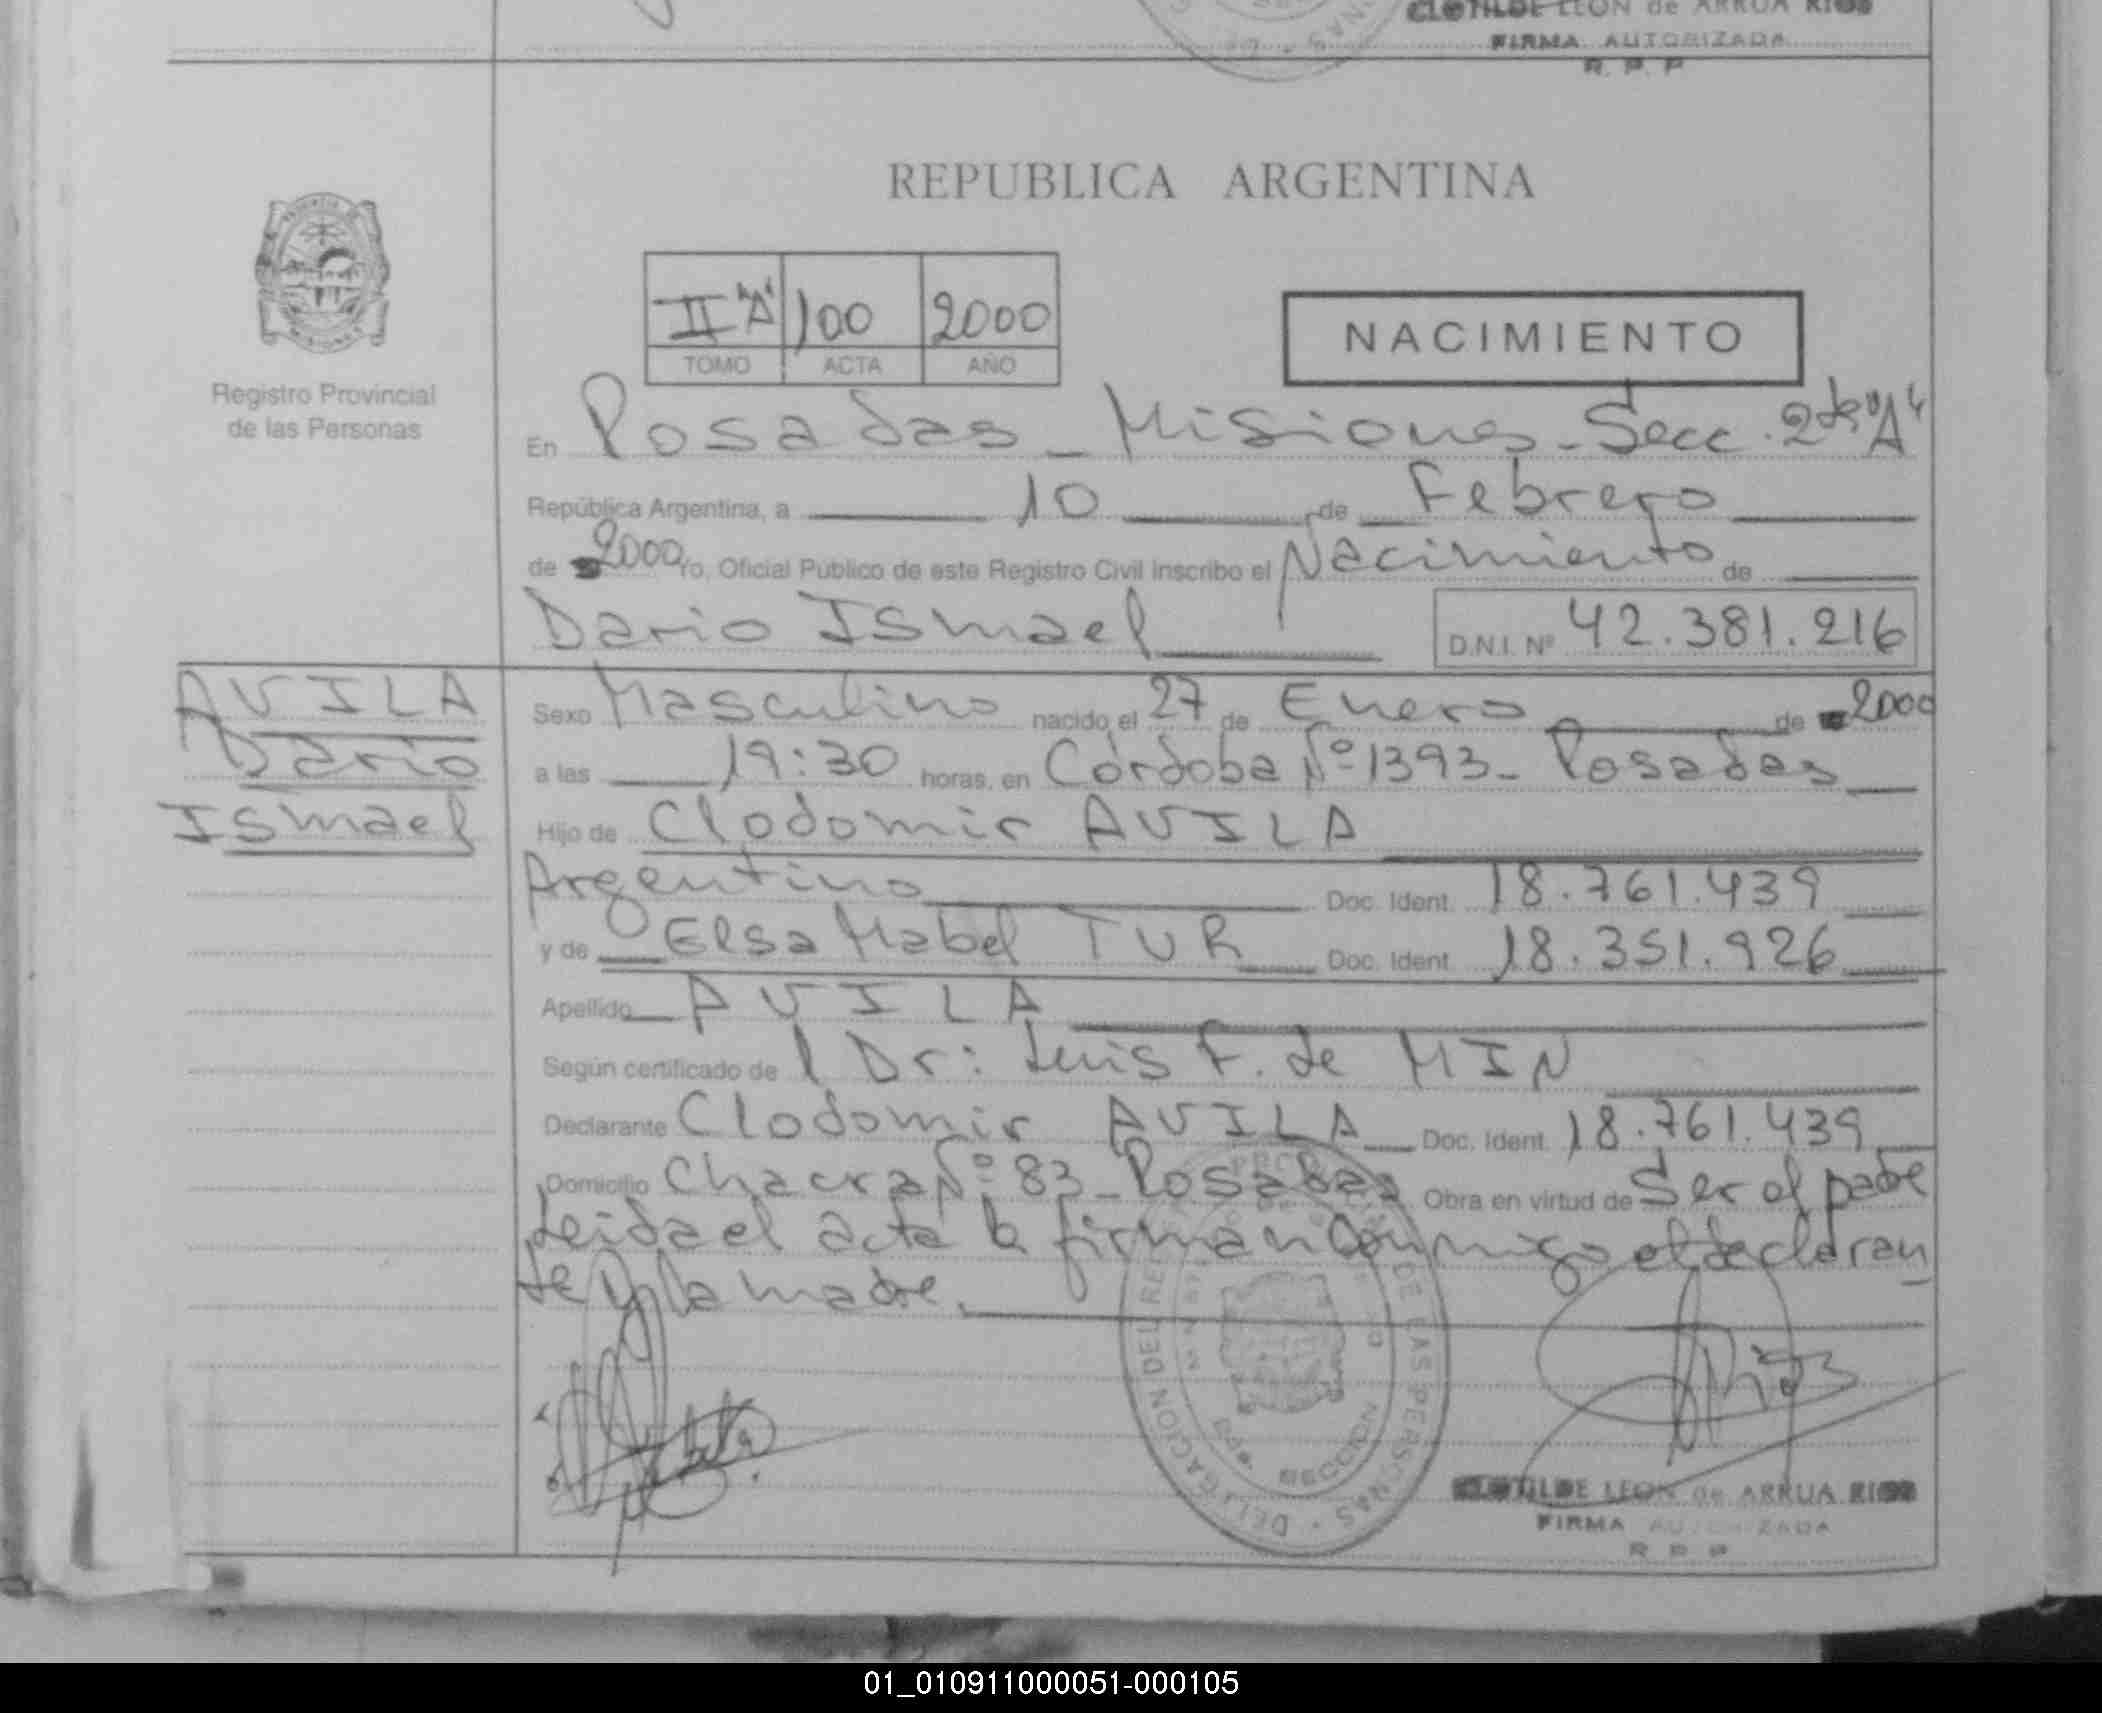 CLOTILDE LEON de ARRUA RIOS
FIRMA AUTORIZADA
R. P. P
REPUBLICA ARGENTINA
II "A" 100 2000
TOMO ACTA AÑO
NACIMIENTO
Registro Provincial
de las Personas
En Posadas - Misiones - Secc. 2da "A"
República Argentina, a 10 de Febrero
de 2000 Yo, Oficial Público de este Registro Civil inscribo el Nacimiento de
Dario Ismael D.N.I. Nº 42.381.216
AVILA
Dario
Ismael
Sexo Masculino nacido el 27 de Enero de 2000
a las 19:30 horas, en Córdoba Nº 1393 - Posadas
Hijo de Clodomir AVILA
Argentino Doc. Ident. 18.761.439
y de Elsa Mabel TUR Doc. Ident. 18.351.926
Apellido AVILA
Según certificado de l Dr: Luis F. de MIN
Declarante Clodomir AVILA Doc. Ident. 18.761.439
Domicilio Chacra Nº 83 - Posadas Obra en virtud de Ser el padre
Leida el acta la firman Conmigo el declaran
te y la madre.
DELEGACION DEL DE LAS PERSONAS
SECCION
CLOTILDE LEON de ARRUA RIOS
FIRMA AUTORIZADA
R P P
01_010911000051-000105